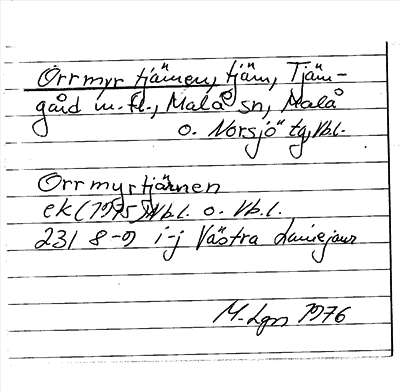 Orrmyrtjärnen, tjärn, Tjärn-
gård m.fl., Malå sn, Malå
o. Norsjö tg, Vbl.
Orrmyrtjärnen
ek (1975) Vbl. o. Vb.l.
231 8-9 i-j Västra Lainejaur
M. Lgn 1976